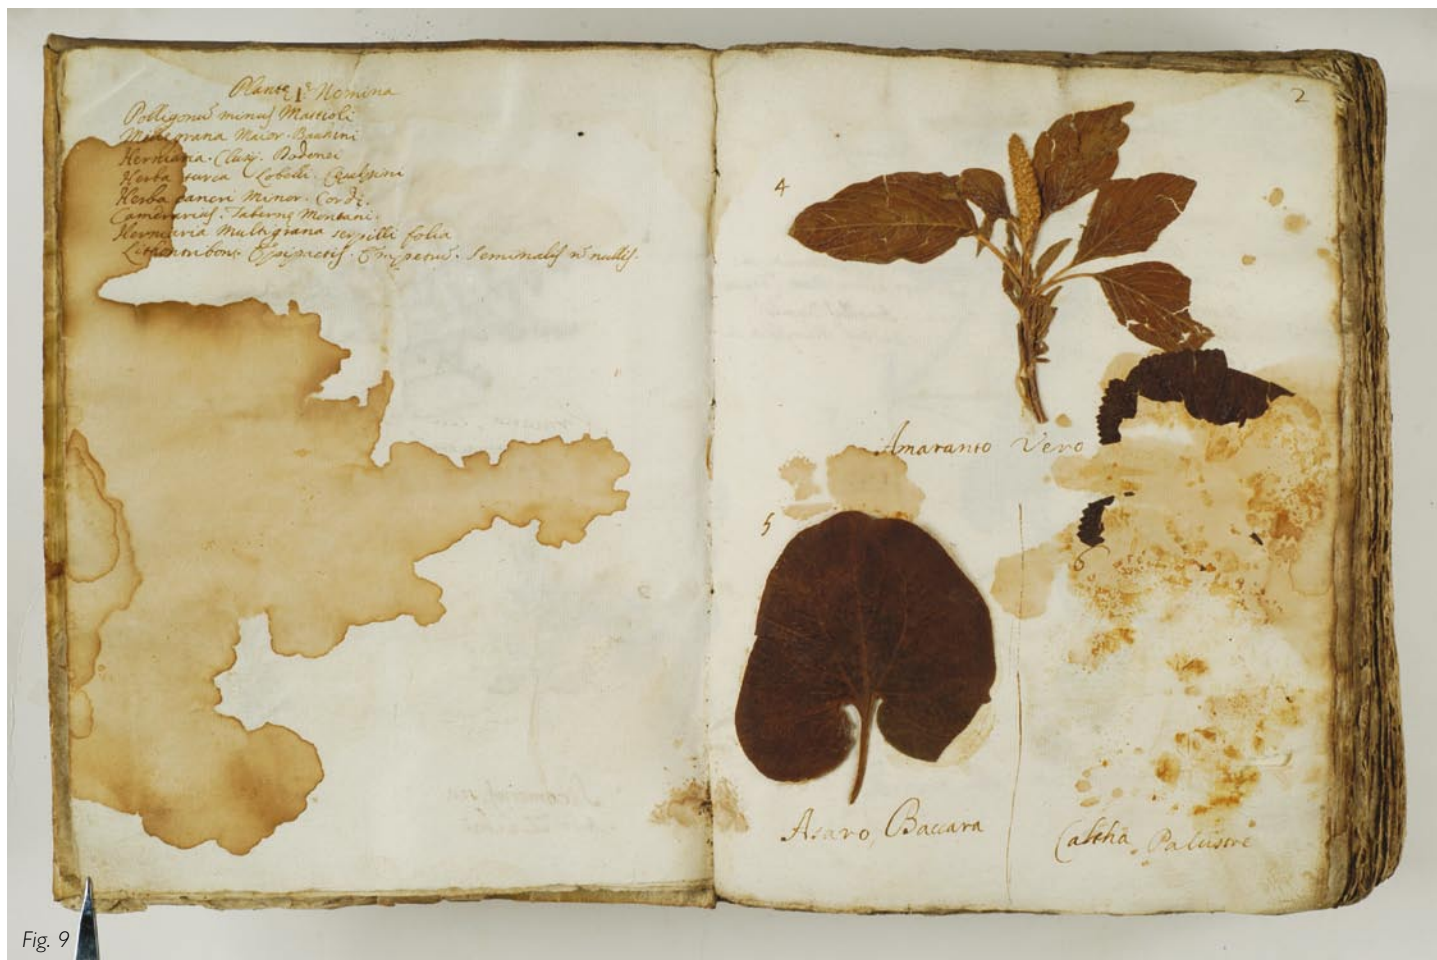 Plantę 1ę Nomina
Polligonū minus Mattioli
Millegrana Maior. Bauhini
Herniaria. Clusÿ. Dodonei
Herba turca Lobelli. Cęsalpini
Herba cancri Minor. Cordi.
Camerarius. Tabernę Montani.
Herniaria Multigrana serpilli folia
Lithontribon. Epipactis. Empetrū. Seminalis nōnullis.
2
4
Amaranto Vero
5
6
Asaro, Baccara
Caltha Palustre
Fig. 9